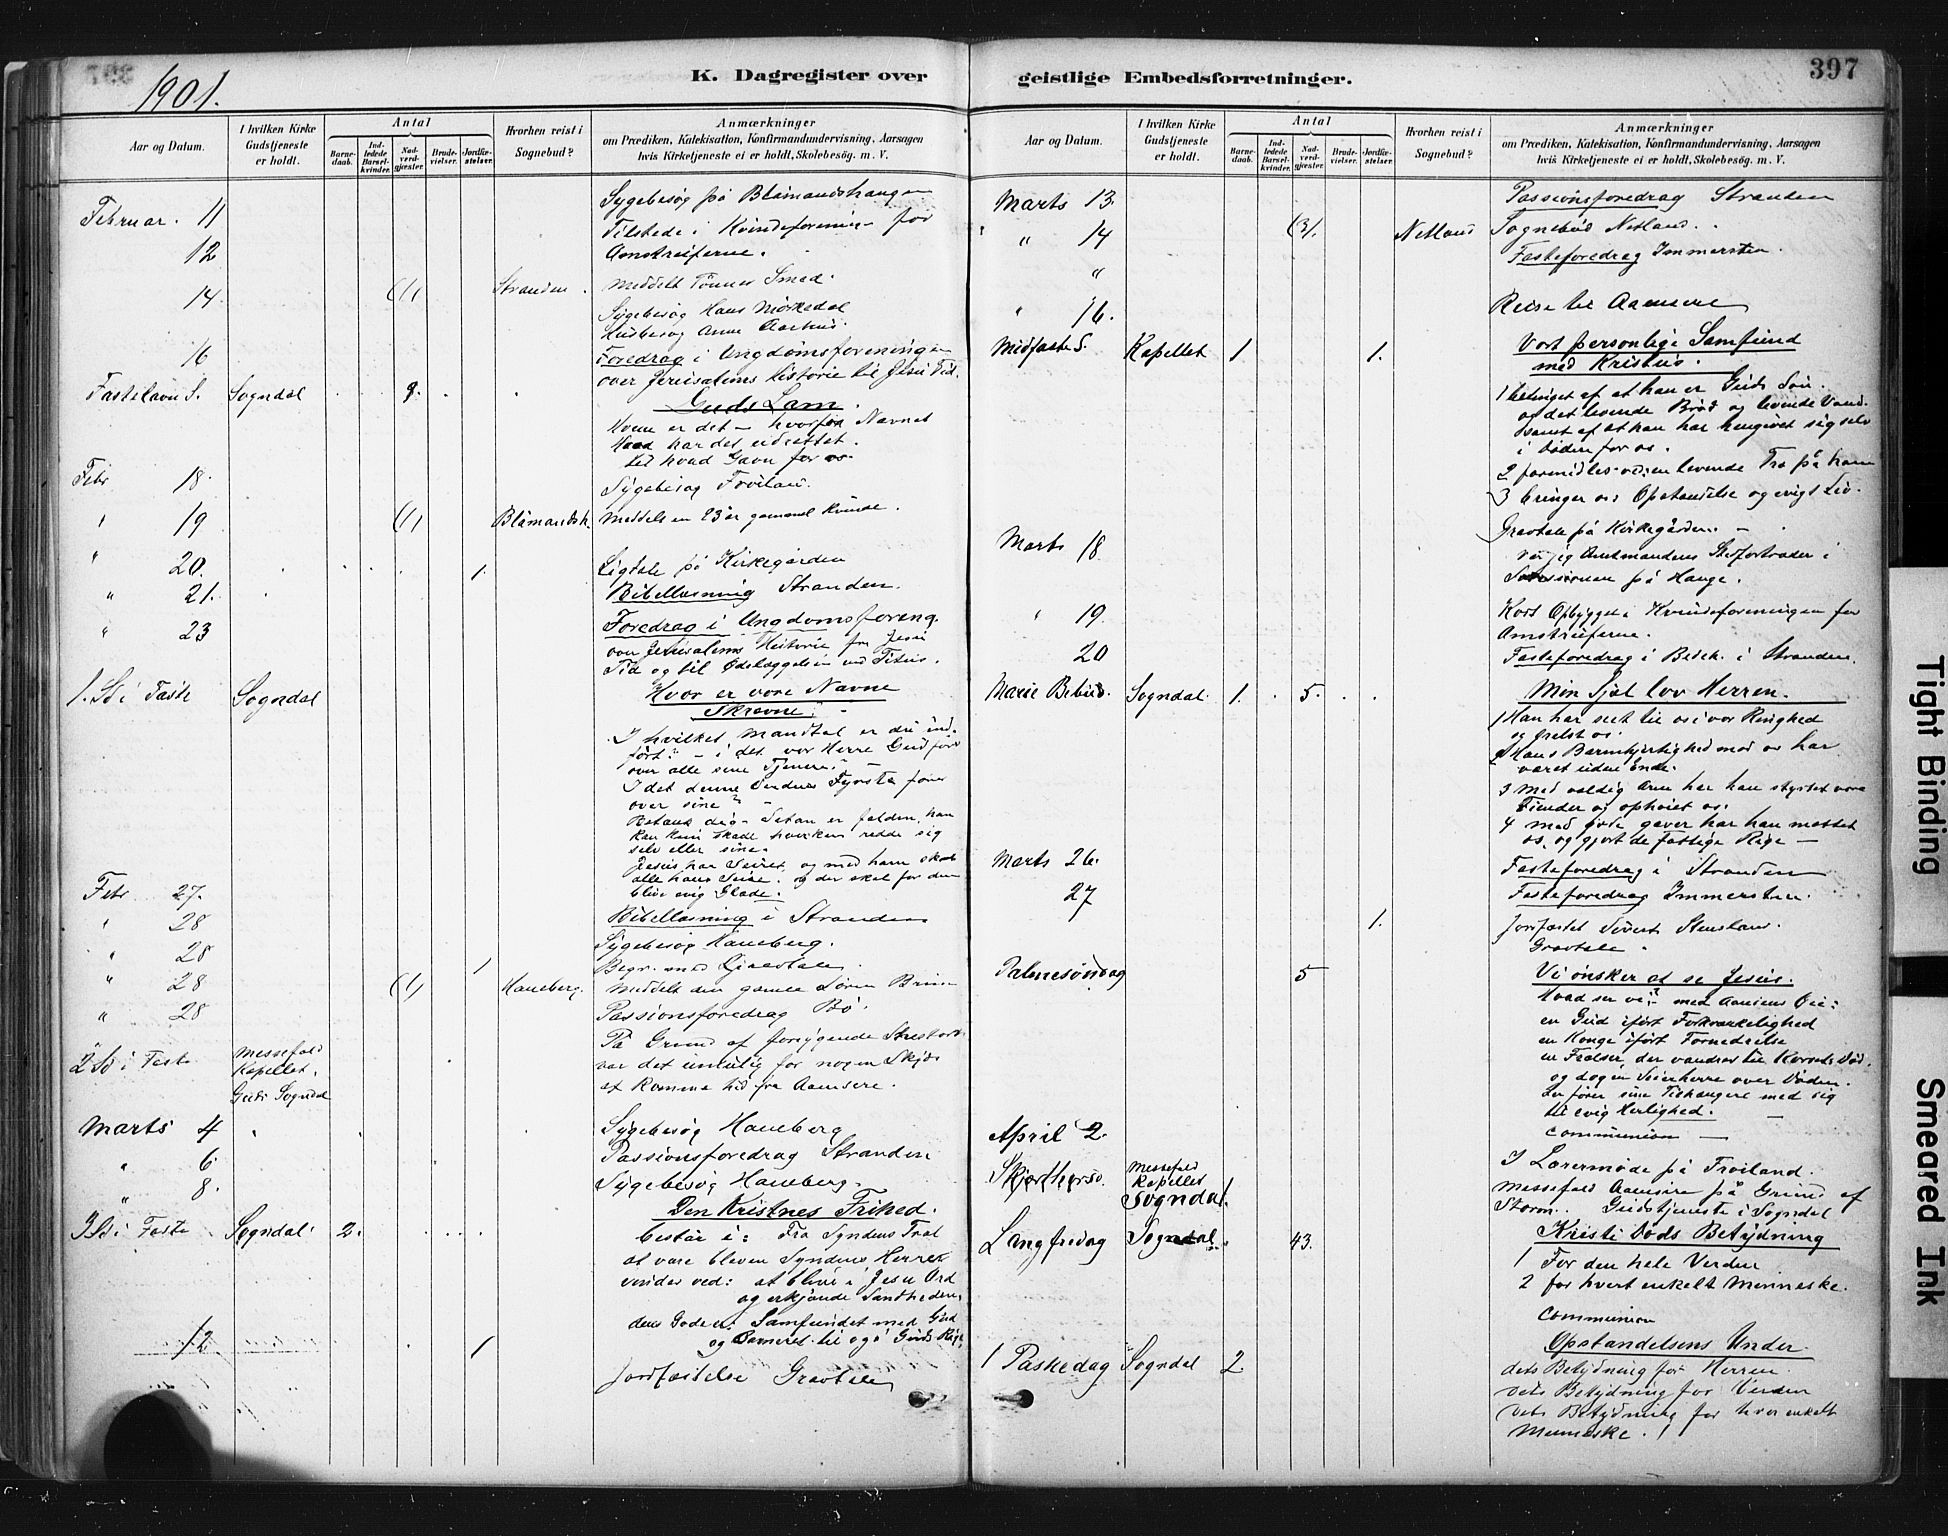 1901.
K. Dagregister over
geistlige Embedsforretninger.
397
Aar og Datum.
I hvilken Kirke Gudstjeneste er holdt.
Antal
Barnedaab.
Indledede Barselkvinder.
Nadverdgjester.
Brudevielser.
Jordfæstelser.
Hvorhen reist i Sognebud?
Anmærkninger
om Prædiken, Katekisation, Konfirmandundervisning, Aarsagen
hvis Kirketjeneste ei er holdt, Skolebesøg. m. V.
Februar. 11 Sygebesøg på Blåmandshaugen
12 Tilstede i Kvindeforening for
Amstruferne.
14. (1) Stranden. Meddelt Tönnes Smed.
Sygebesøg Hans Mörkedal
Husbesøg Anne Aarhus.
16 Foredrag i Ungdomsforeningen
over Jerusalems Historie til Jesu Tid.
Fastelavn S. Sogndal 9. Guds Lam.
Hvem er det – hvorfor Navnet
Hvad har det udrettet.
til hvad Gavn for os.
Febr 18. Sygebesøg
" 19 (1) Blåmandsh. Meddelt en 23 år gammel Kvinde.
" 20. 1. Ligtale på Kirkegården
" 21. Bibellæsning Stranden.
" 23 Foredrag i Ungdomsforeng.
over Jerusalems Historie fra Jesu
Tid og til Ødelæggelsen ved Titus.
1. S i Faste Sogndal Hvor er vore Navne
Skrevne?
I hvilket Mandtal er du ind-
ført? – i det vor Herre Gud fører
over alle sine Tjenere? –
I det denne Verdens Fyrste fører
over sine? –
Satan er falden, han
kan kun skade hverken redde sig
selv eller sine.
Jesus har Seiret, og med ham skal
alle hans Seire. og der skal for dem
blive evig Glæde.
Febr 27. Bibellæsning i Stranden
" 28 Sygebesøg Haneberg.
" 28 1 Begr. med Gravtale.
" 28 (1) Haneberg. Meddelt den gamle Sören
" 28 Passionsforedrag Bö.
2 S i Faste Messefald
Kapellet.
Guds Sogndal
På Grund af forrygende
var det umulig for nogen Skyds
at komme hid fra Aamsere.
Marts 4 Sygebesøg Haneberg
" 6. Passionsforedrag Stranden
" 8. Sygebesøg Haneberg.
3 S i Faste Sogndal 2. Den Kristnes Frihed.
består i: Fra Syndens Træl
at være bleven Syndens Herre
vindes ved: at blive i Jesu Ord
og erkjende Sandheden.
dens Goder: Samfundet med Gud
og Barneret til også Guds Rige.
12 1 Jordfæstelse Gravtale
Aar og Datum.
I hvilken Kirke Gudstjeneste er holdt.
Antal
Barnedaab.
Indledede Barselkvinder.
Nadverdgjester.
Brudevielser.
Jordfæstelser.
Hvorhen reist i Sognebud?
Anmærkninger
om Prædiken, Katekisation, Konfirmandundervisning, Aarsagen
hvis Kirketjeneste ei er holdt, Skolebesøg. m. V.
Marts 13. Passionsforedrag Stranden
" 14 (3). Netland Sognebud Netland.
" Fasteforedrag Immersten.
" 16. Reise til Aamsere
Midfaste S. Kapellet 1 1. Vort personlige Samfund
med Kristus.
1 betinget af at han er Guds Søn.
og det levende Brød og levende Vand.
samt af at han har hengivet sig selv
i döden for os.
2 formidles ved en levende Tro på ham
3 bringer os Opstandelse og evigt Liv.
Gravtale på Kirkegården.
Marts 18 var jeg Amtmandens Stedfortræder i
Sessionen på Hauge.
" 19. Kort Opbyggel. i Kvindeforeningen for
Amstruferne.
20 Fasteforedrag i Bedeh. i Stranden.
Marie Bebud. Sogndal. 1. 5. Min Sjæl lov Herren.
1 Han har seet til os i vor Ringhed
og frelst os.
2 Hans Barmhjertighed mod os har
været uden Ende.
3 Med vældig Arm har han styrtet vore
Fiender og ophøiet os.
4 Med gode gaver har han mættet
os, og gjort de Fattige Rige –
Marts 26. Fasteforedrag i Stranden
27 Fasteforedrag Immersten.
1. Jordfæstet Sivert Stensland.
Gravtale.
Palmesøndag 5 Vi ønsker at se Jesus.
Hvad ser vi? – med Aandens Øie:
en Gud iført Forkrænkelighed
en Konge iført Fornedrelse
en Frelser der vandrer til Korsets Död.
og dog en Seierherre over Döden.
der fører sine Tilhængere med sig
til evig Herlighed. –
Communion –
April 2. I Lærermøde på Fröiland.
Skjærthorsd. Messefald
Kapellet
Sogndal.
Messefald Aamsere på Grund af
Storm. Gudstjeneste i Sogndal
Langfredag Sogndal 43. Kristi Döds Betydning
1 For den hele Verden
2 for hvert enkelt Menneske.
Communion
1 Paskedag Sogndal 2. Opstandelsens Under.
dets Betydning for Herren
dets Betydning for Verden
dets Betydning for hver enkelt
Menneske.
Tight Binding
Smeared Ink